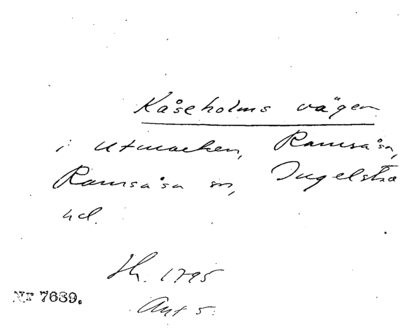 Kåseholms vägen
i utmarken, Ramsåsa,
Ramsåsa sn, Ingelsta
hd.
Sk. 1795
Akt 5.
Nr 7639.